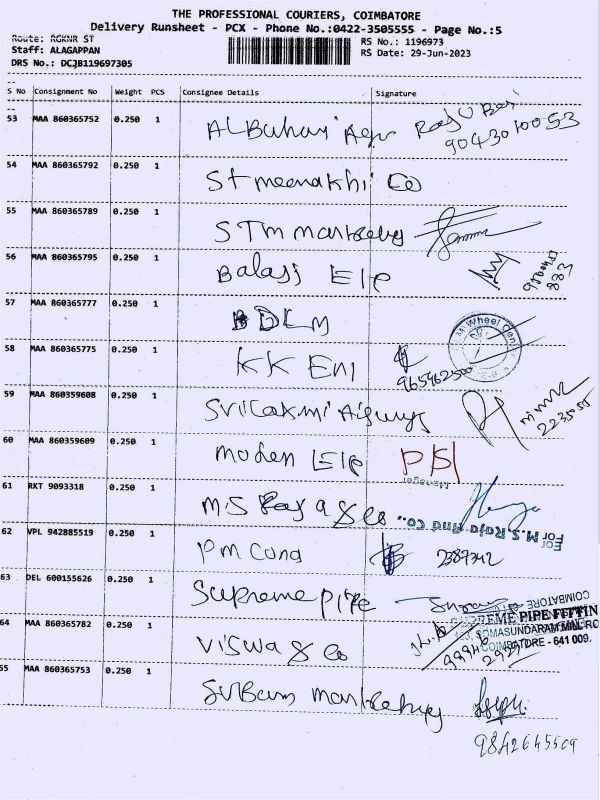 THE PROFESSIONAL COURIERS, COIMBATORE
Delivery Runsheet - PCX - Phone No.:0422-3505555 - Page No.:5
Route: RGKNR ST
RS No.: 1196973
Staff: ALAGAPPAN
RS Date: 29-Jun-2023
DRS No.: DCJB119697305
S No Consignment No Weight PCS Consignee Details Signature
53 MAA 860365752 0.250 1 ALBuhari 9043010053
54 MAA 860365792 0.250 1 St meenakhi Co
55 MAA 860365789 0.250 1 STM
56 MAA 860365795 0.250 1 Balaji Ele
57 MAA 860365777 0.250 1 DLM
Wheel
58 MAA 860365775 0.250 1 KK Eni
59 MAA 860359608 0.250 1
60 MAA 860359609 0.250 1 Modern Ele
Manager
61 RKT 9093318 0.250 1 M.S Raja & Co
For M.S. Raja And Co.,
62 VPL 942885519 0.250 1 PM Cona 2387342
63 DEL 600155626 0.250 1 Supreme PiPe
COIMBATORE
PIPE FITTIN
SOMASUNDARAM MILL RO
COIMBATORE - 641 009.
64 MAA 860365782 0.250 1 Viswa & Co
65 MAA 860365753 0.250 1
9842645509